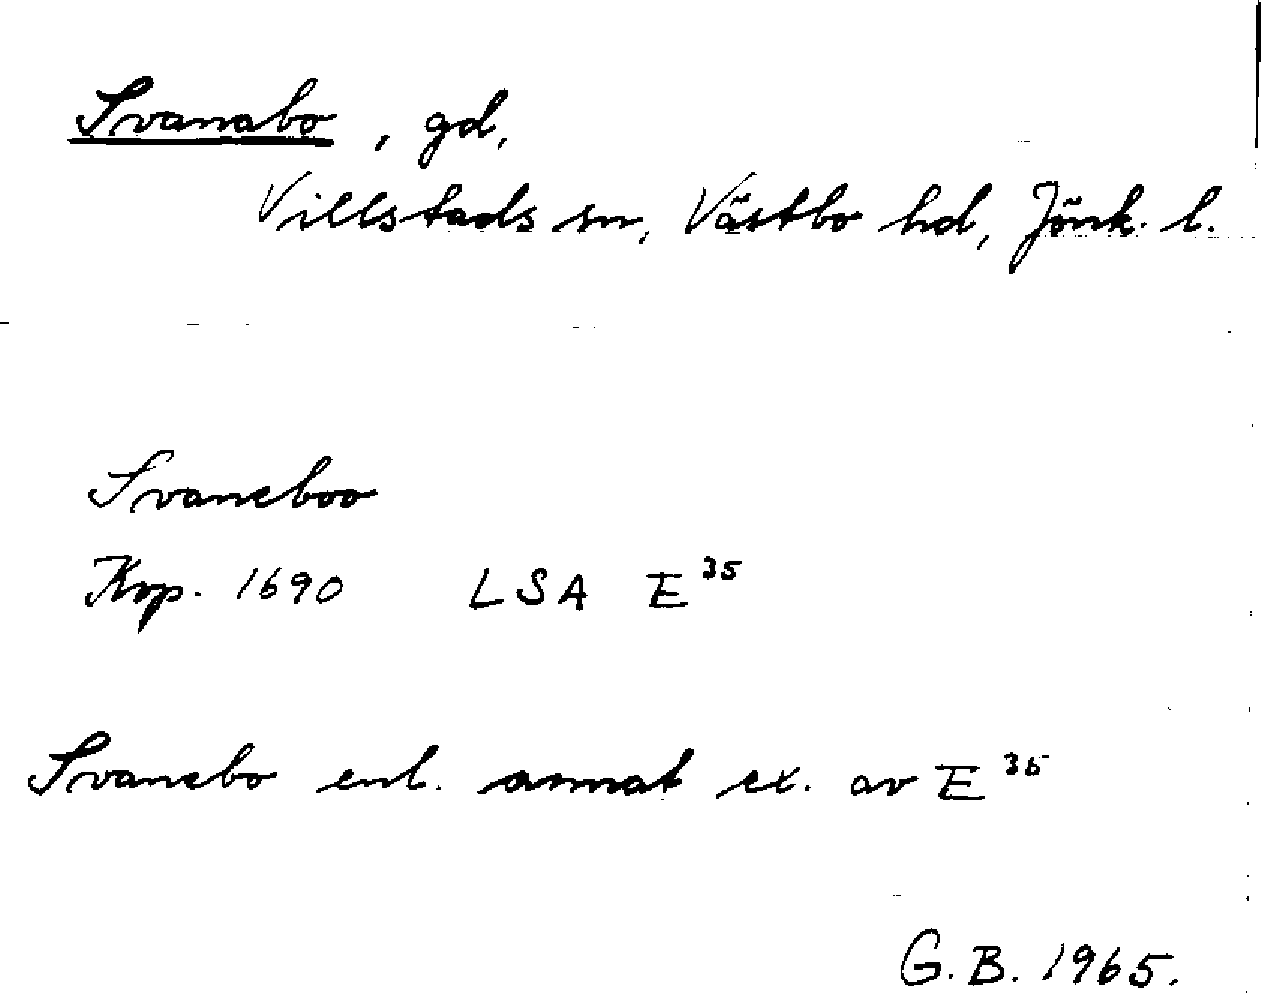 Svanabo, gd,
Villstads sn, Västbo hd, Jönk. l.
Svaneboo
Kop. 1690 LSA E³⁵
Svanebo enl. annat ex. av E³⁵
G.B. 1965.